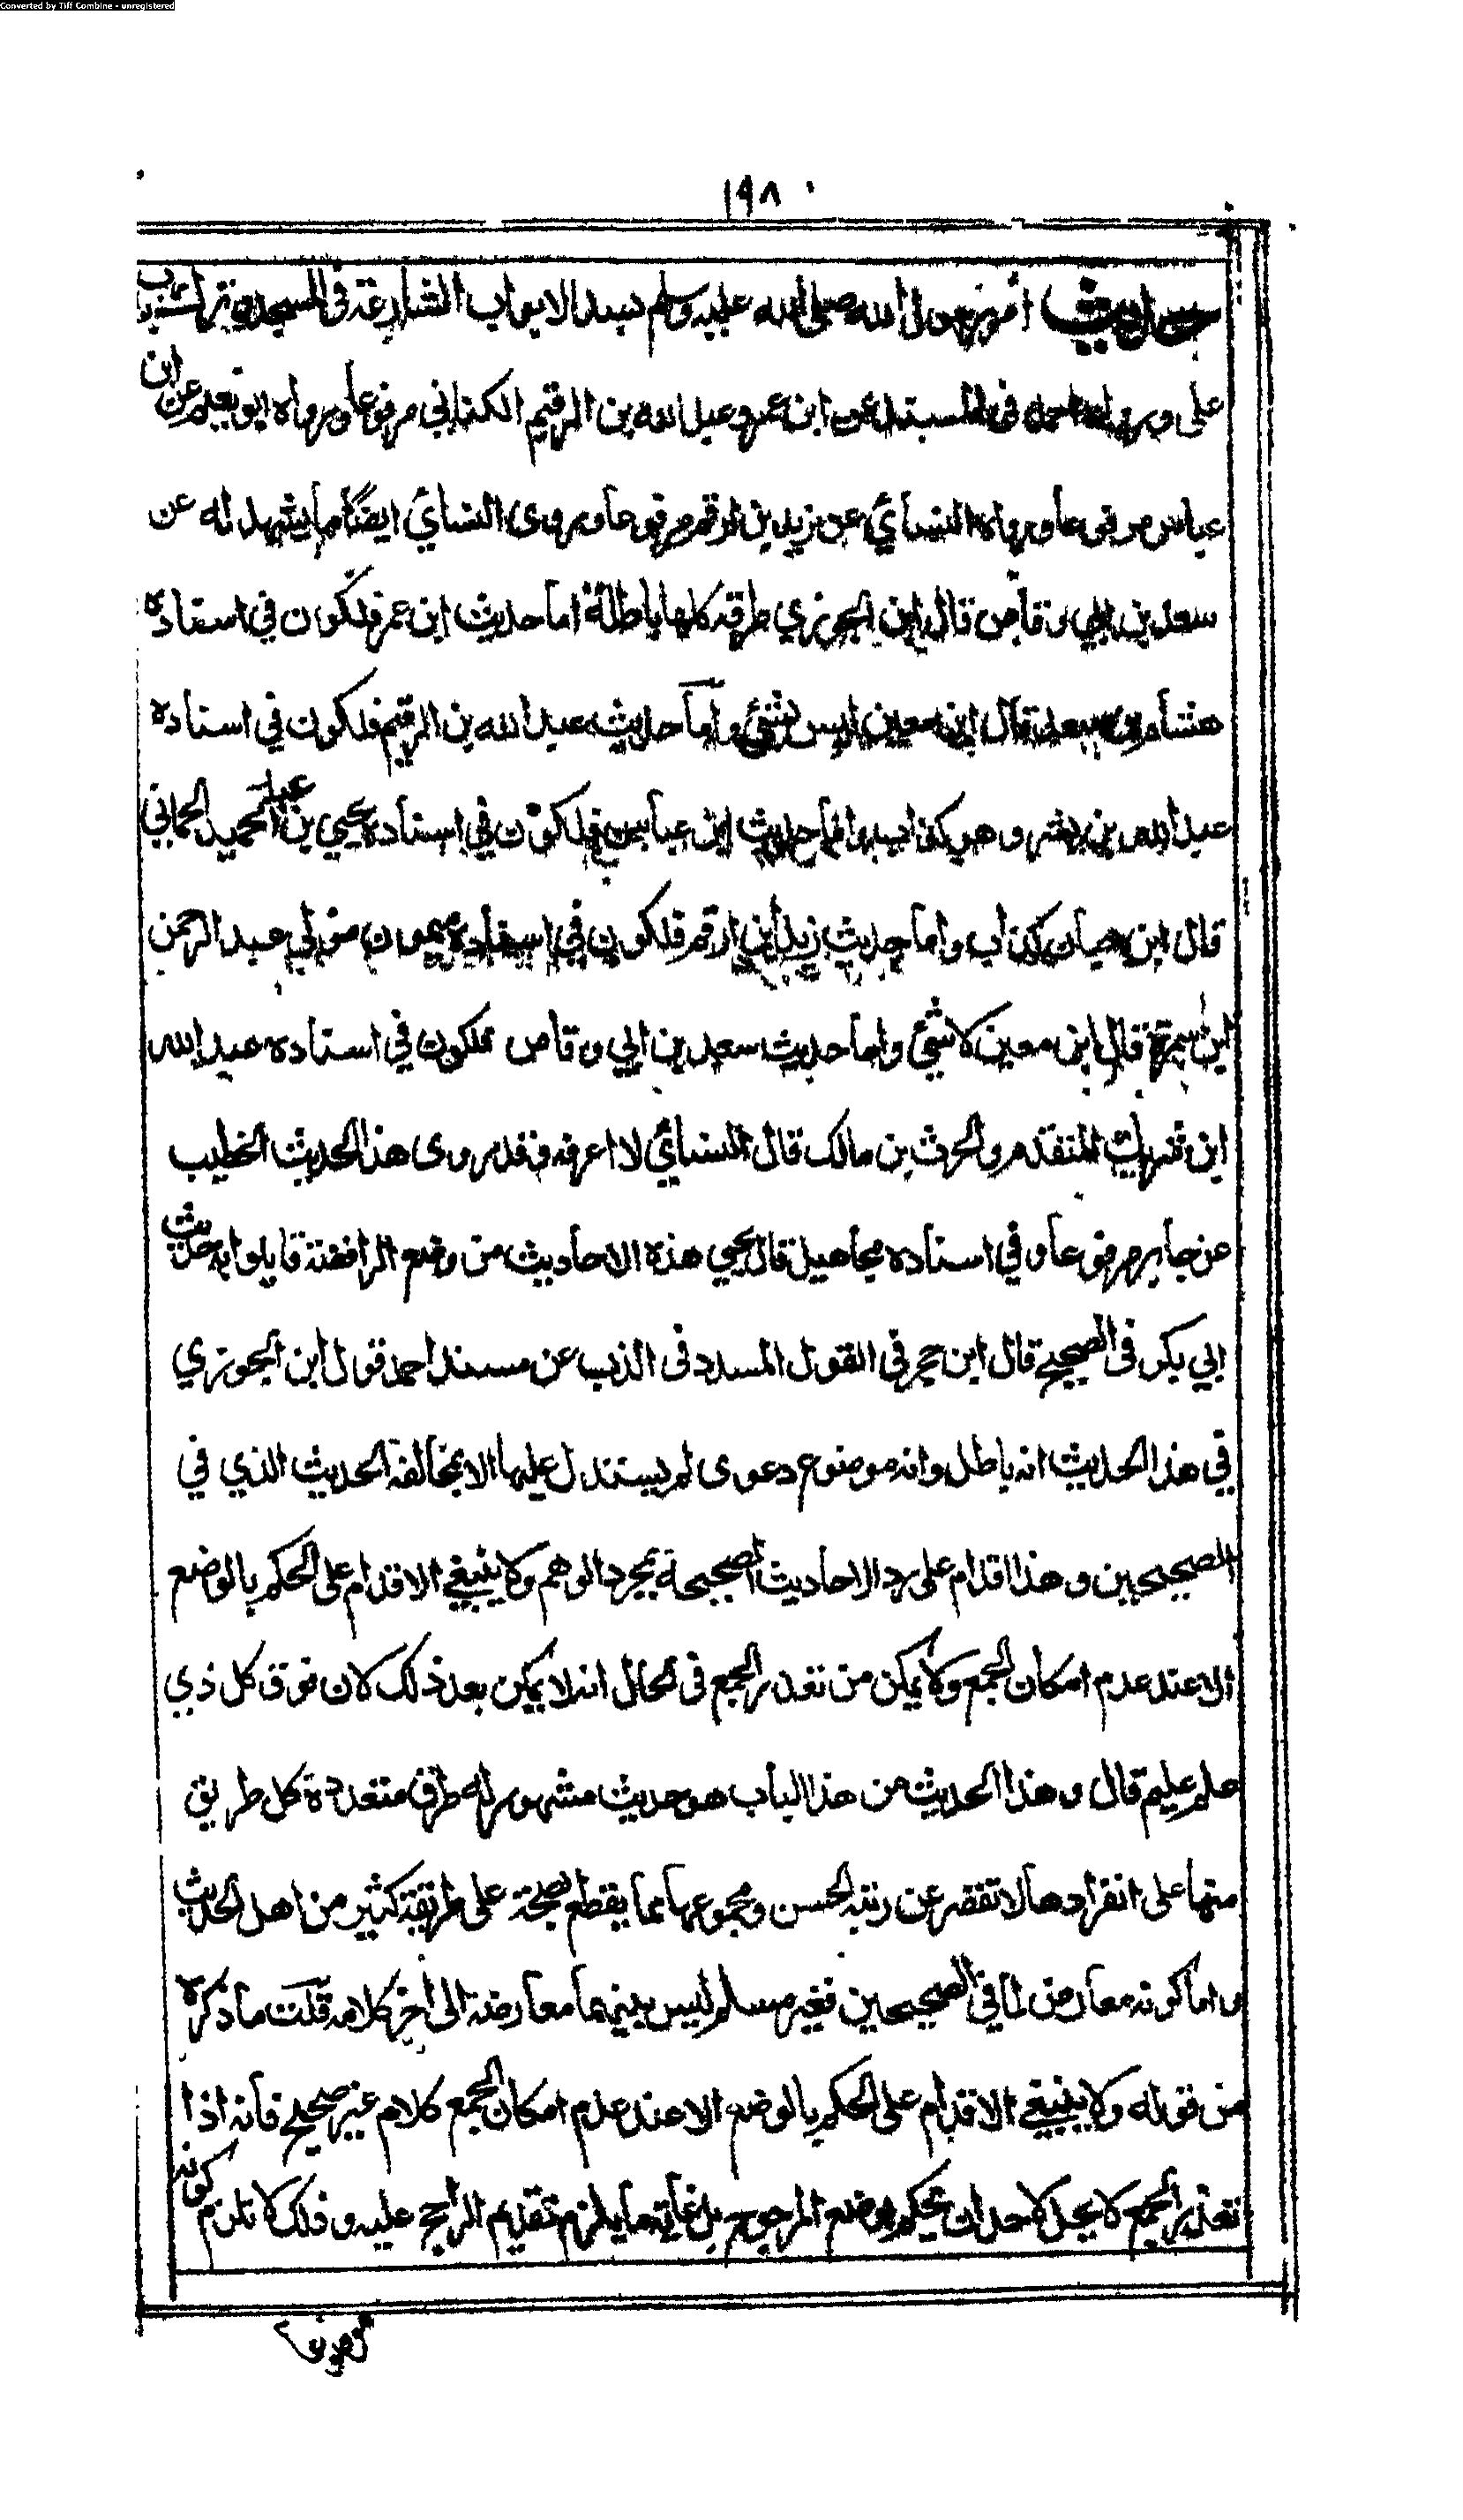 Converted by Tiff Combine - unregistered
١٩٨
حديث أمر رسول الله صلى الله عليه وسلم بسد الابواب الشارعة فى المسجد وترك باب
على ورواه احمد فى المسند عن ابن عمر وعبد الله بن الرقيم الكنانى مرفوعا ورواه ابو نعيم عن ابن
عباس مرفوعا ورواه النسائي عن زيد بن ارقم مرفوعا وروى النسائي ايضًا ما يشهد له عن
سعد بن ابي وقاص قال ابن الجوزي طرقه كلها باطلة اما حديث ابن عمر فلكون في اسناده
هشام بن سعد قال ابن معين ليس بشئ واما حديث عبد الله بن الرقيم فلكون في اسناده
عبد الله بن شريك وهو كذاب واما حديث ابن عباس فلكون في اسناده يحيي بن عبد الحميد الحماني
قال ابن كذاب واما حديث زيد ابن ارقم فلكون في اسناده ميمون مولى عبد الرحمن
ابن سمرة قال ابن معين لا شئ واما حديث سعد بن ابي وقاص فلكون في اسناده عبد الله
ابن شريك المتقدم والحرث بن مالك قال النسائي لا اعرفه وقد روى هذا الحديث الخطيب
عن جابر مرفوعا وفي اسناده مجاهيل قال يحيي هذه الاحاديث من وضع الرافضة قابلوا به حديث
ابي بكر فى الصحيح قال ابن حجر فى القول المسدد فى الذب عن مسند احمد قول ابن الجوزي
في هذا الحديث انه باطل وانه موضوع دعوى لم يستدل عليها الا بمخالفة الحديث الذي في
الصحيحين وهذا اقدام على رد الاحاديث الصحيحة بمجرد الوهم ولا ينبغي الاقدام على الحكم بالوضع
الا عند عدم امكان الجمع ولا يمكن من تعذر الجمع فى الحال انه لا يمكن بعد ذلك لان فوق كل ذي
علم عليم قال وهذا الحديث من هذا الباب هو حديث مشهور له طرق متعددة كل طريق
منها على انفرادها لا تقصر عن رتبة الحسن ومجموعها مما يقطع بصحة على طريقة كثير من اهل الحديث
واما كونه معارض لما في الصحيحين فغير مسلم ليس بينهما معارضة الى اخر كلامه قلت ما ذكره
من قوله ولا ينبغي الاقدام على الحكم بالوضع الا عند عدم امكان الجمع كلام غير صحيح فانه اذا
تعذر الجمع لا يحل لاحد ان يحكم بوضع المرجوح بل غاية ما يلزم تقديم الراجح عليه وذلك لا يلزم كونه